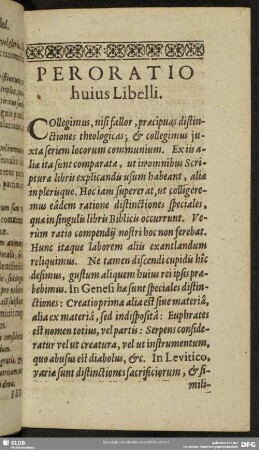 PERORATIO
huius Libelli.
COllegimus, nisi fallor, præcipuas distin-
ctiones theologicas; & collegimus ju-
xta seriem locorum communium. Ex iis a-
lia ita sunt comparata, ut in omnibus Scri-
pturæ libris explicandis usum habeant, alia
in plerisque. Hoc jam supererat, ut colligere-
mus eâdem ratione distinctiones speciales,
quæ in singulis libris Biblicis occurrunt. Ve-
rùm ratio compendii nostri hoc non ferebat.
Hunc itaque laborem aliis exantlandum
reliquimus. Ne tamen discendi cupidis hîc
desimus, gustum aliquem huius rei ipsis præ-
bebimus. In Genesi hæ sunt speciales distin-
ctiones: Creatio prima alia est sine materiâ,
alia ex materiâ, sed indispositâ: Euphrates
est nomen totius, vel partis: Serpens conside-
ratur vel ut creatura, vel ut instrumentum,
quo abusus est diabolus, &c. In Levitico,
variæ sunt distinctiones sacrificiorum, & si-
mili-
SLUB
DFG